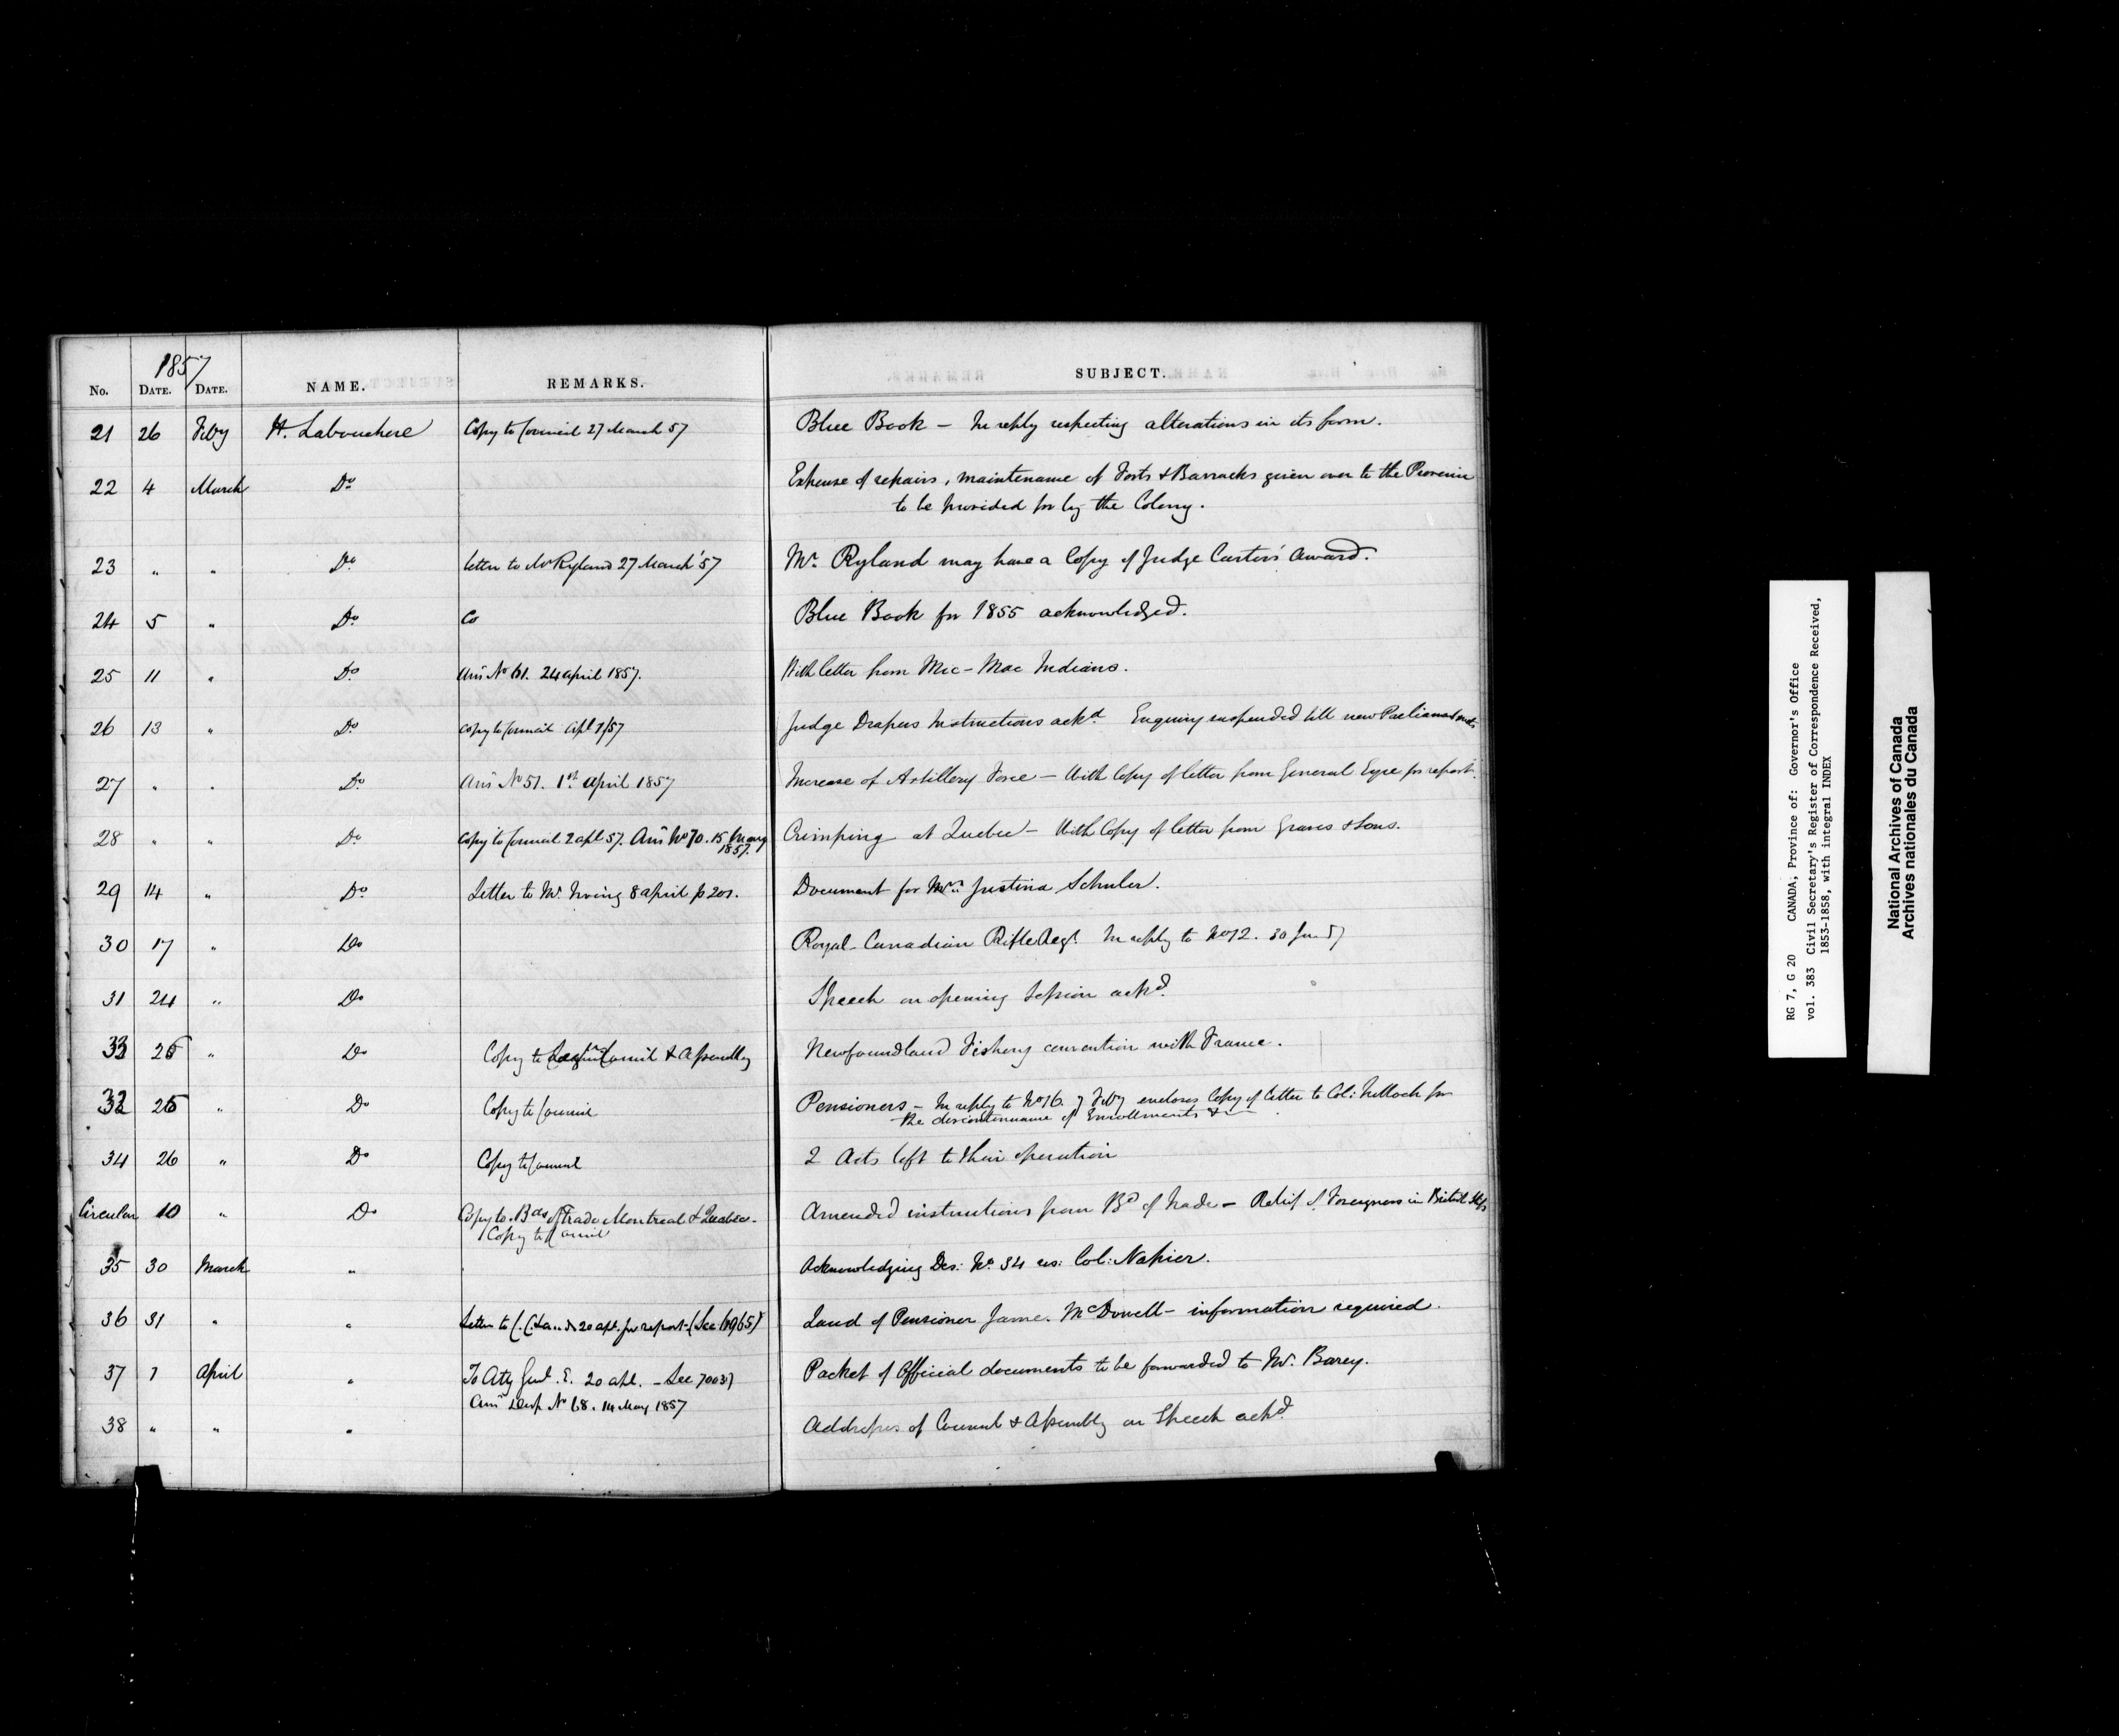 1857
No. DATE. DATE. NAME. REMARKS. SUBJECT.
21 26 Feby H. Labouchere Copy to Council 27 March 57 Blue Book – In reply respecting alterations in its form.
22 4 March Do Expense of repairs, maintenance of Forts & Barracks given over to the Province
to be provided for by the Colony.
23 " " Do Letter to Mr Ryland 27 March '57 Mr. Ryland may have a Copy of Judge Carter's award.
24 5 " Do Co Blue Book for 1855 acknowledged.
25 11 " Do Ansd No 61. 24 April 1857. With letter from Mic-Mac Indians.
26 13 " Do Copy to Council Apl 1/57 Judge Drapers Instructions ackd. Enquiry suspended till new Parliament
27 " " Do Ansd No 51. 1st April 1857 Increase of Artillery Force – With Copy of letter from General Eyre for report.
28 " " Do Copy to Council 2 apl 57. Ansd No 70. 15 May
1857. Crimping at Quebec – With Copy of letter from Graves & Sons.
29 14 " Do Letter to Mr. Irving 8 April p 201. Document for Mrs. Justina Schuler.
30 17 " Do Royal Canadian Rifle Regt. In reply to No 12. 30 Jan 57
31 24 " Do Speech on opening Session ackd.
33 25 " Do Copy to Council & Assembly Newfoundland Fishery convention with France.
32 25 " Do Copy to Council Pensioners – In reply to No 16. 7 Feby encloses Copy of letter to Col: Tulloch for
the discontinuance of Enrollments &c
34 26 " Do Copy to Council 2 Acts left to their operation
Circular 10 " Do Copy to Bds of Trade Montreal & Quebec –
Copy to Council Amended instructions from Bd of Trade – Relief of Foreigners in British Ships
35 30 March " Acknowledging Des: No. 34 res: Col: Napier.
36 31 " " Letter to C. C. Lands 20 apl. for report – (See 6965) Land of Pensioner James McDowell – information required.
37 1 April " To Atty Genl. E. 20 apl. – See 7003) Packet of Official documents to be forwarded to Mr. Barey.
Ansd Desp No 68. 14 May 1857
38 " " " Addresses of Council & Assembly on Speech ackd.
RG 7, G 20 CANADA; Province of: Governor's Office
vol. 383 Civil Secretary's Register of Correspondence Received,
1853-1858, with integral INDEX
National Archives of Canada
Archives nationales du Canada